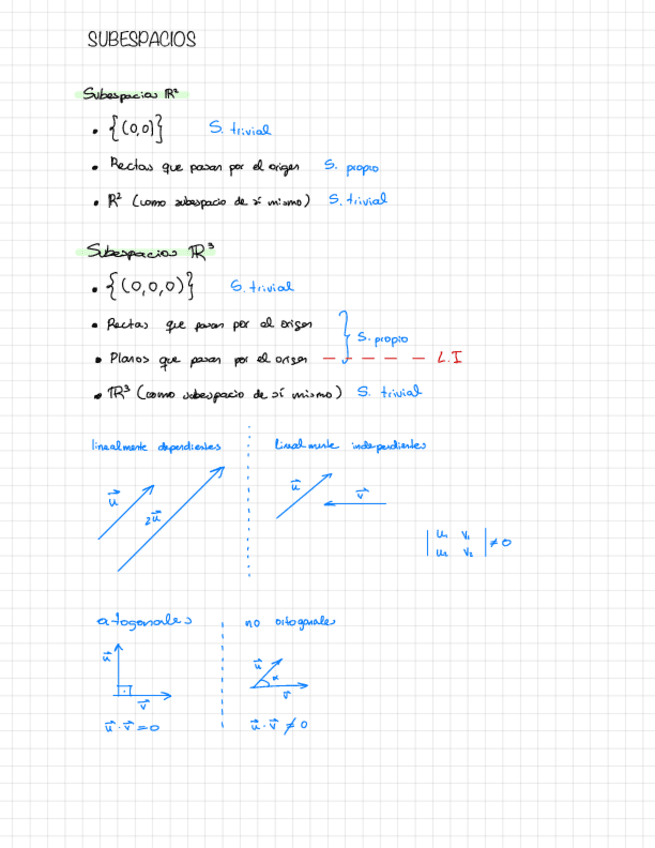 SUBESPACIOS
Subespacios ℝ²
• {(0,0)} S. trivial
• Rectas que pasan por el origen S. propio
• ℝ² (como subespacio de sí mismo) S. trivial
Subespacios ℝ³
• {(0,0,0)} S. trivial
• Rectas que pasan por el origen
S. propio
• Planos que pasan por el origen — — — — — L.I
• ℝ³ (como subespacio de sí mismo) S. trivial
linealmente dependientes
linealmente independientes
u⃗
2u⃗
u⃗
v⃗
| u₁ v₁ |
| u₂ v₂ | ≠ 0
ortogonales
no ortogonales
u⃗
v⃗
u⃗
α
v⃗
u⃗ · v⃗ = 0
u⃗ · v⃗ ≠ 0